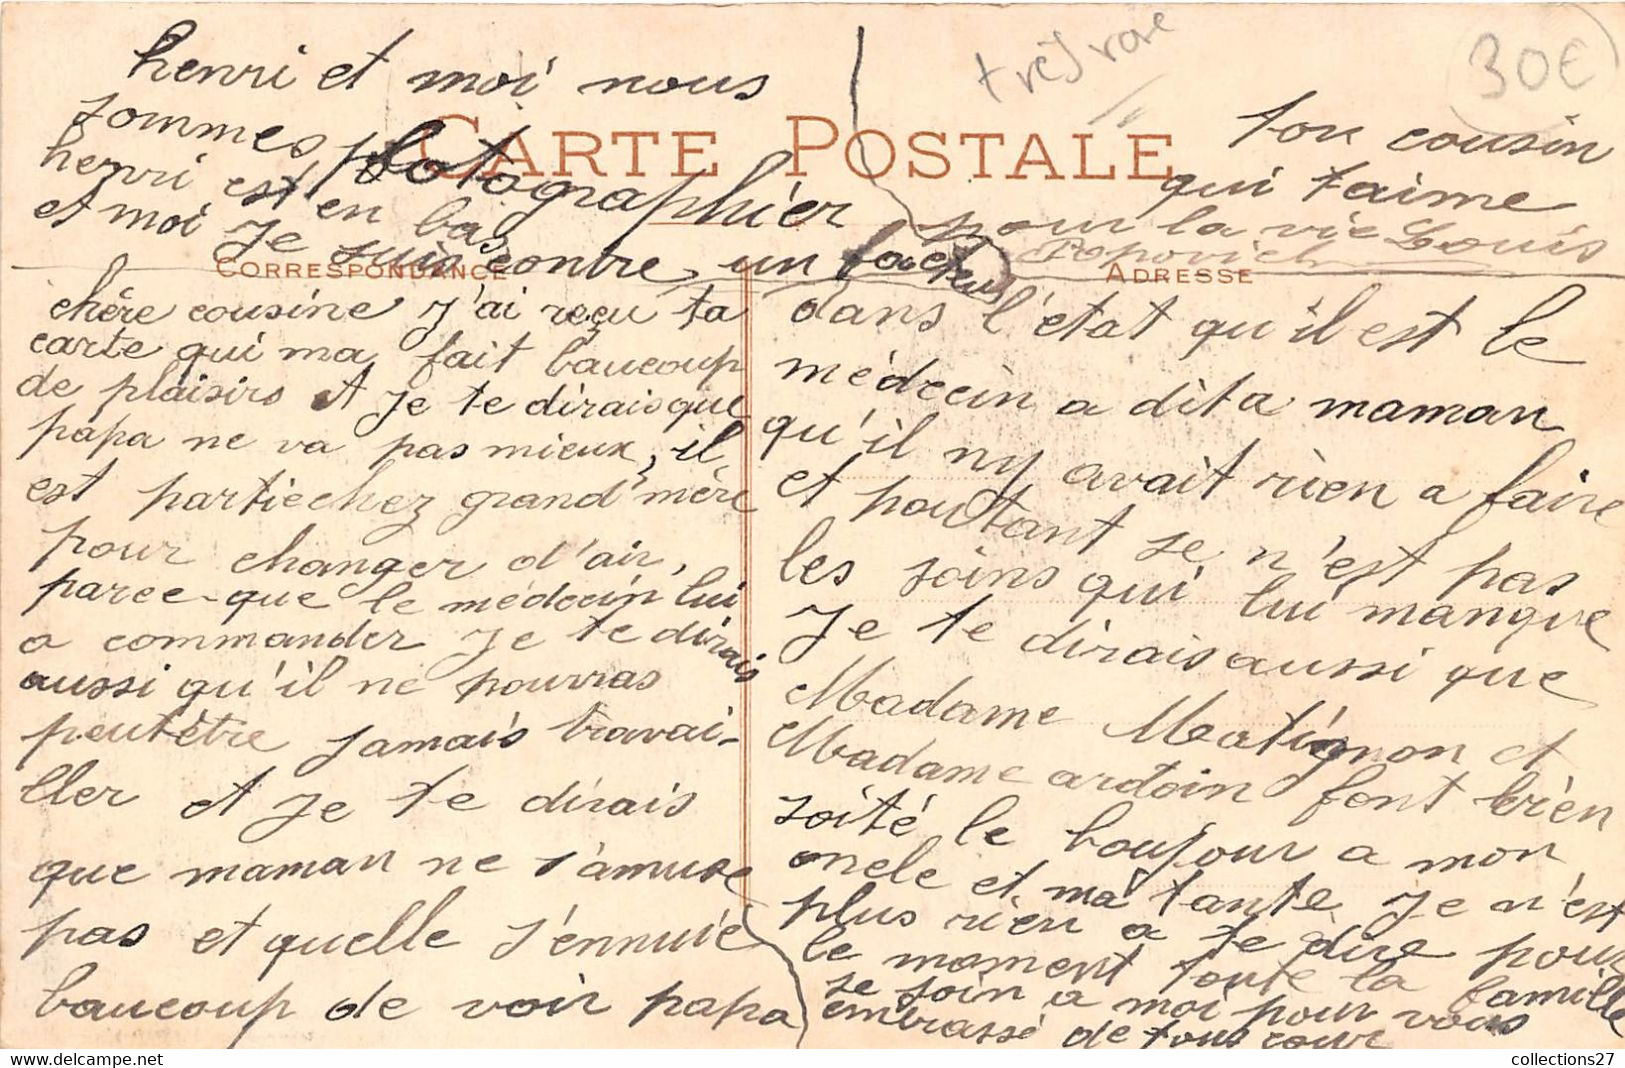 henri et moi nous
sommes photographier
henri est en bas
et moi je suis contre un facteur
très rare
30€
CARTE POSTALE
CORRESPONDANCE
ADRESSE
chère cousine j'ai reçu ta
carte qui ma fait baucoup
de plaisirs et je te dirais que
papa ne va pas mieux, il
est partie chez grand'mère
pour changer d'air,
parce-que le médecin lui
a commander je te dirais
aussi qu'il ne pourras
peutêtre jamais travai-
ller et je te dirais
que maman ne s'amuse
pas et quelle s'ennuie
baucoup de voir papa
dans l'état qu'il est le
médecin a dit a maman
qu'il ny avait rien a faire
et pourtant se n'est pas
les soins qui lui manque
je te dirais aussi que
Madame Matignon et
Madame ardoin font bien
soité le boujour a mon
oncle et ma tante je n'est
plus rien a te dire pour
le moment toute la famille
se join a moi pour vous
embrassé de tous cour
ton cousin
qui t'aime
pour la vie Louis
Popovich
collections27